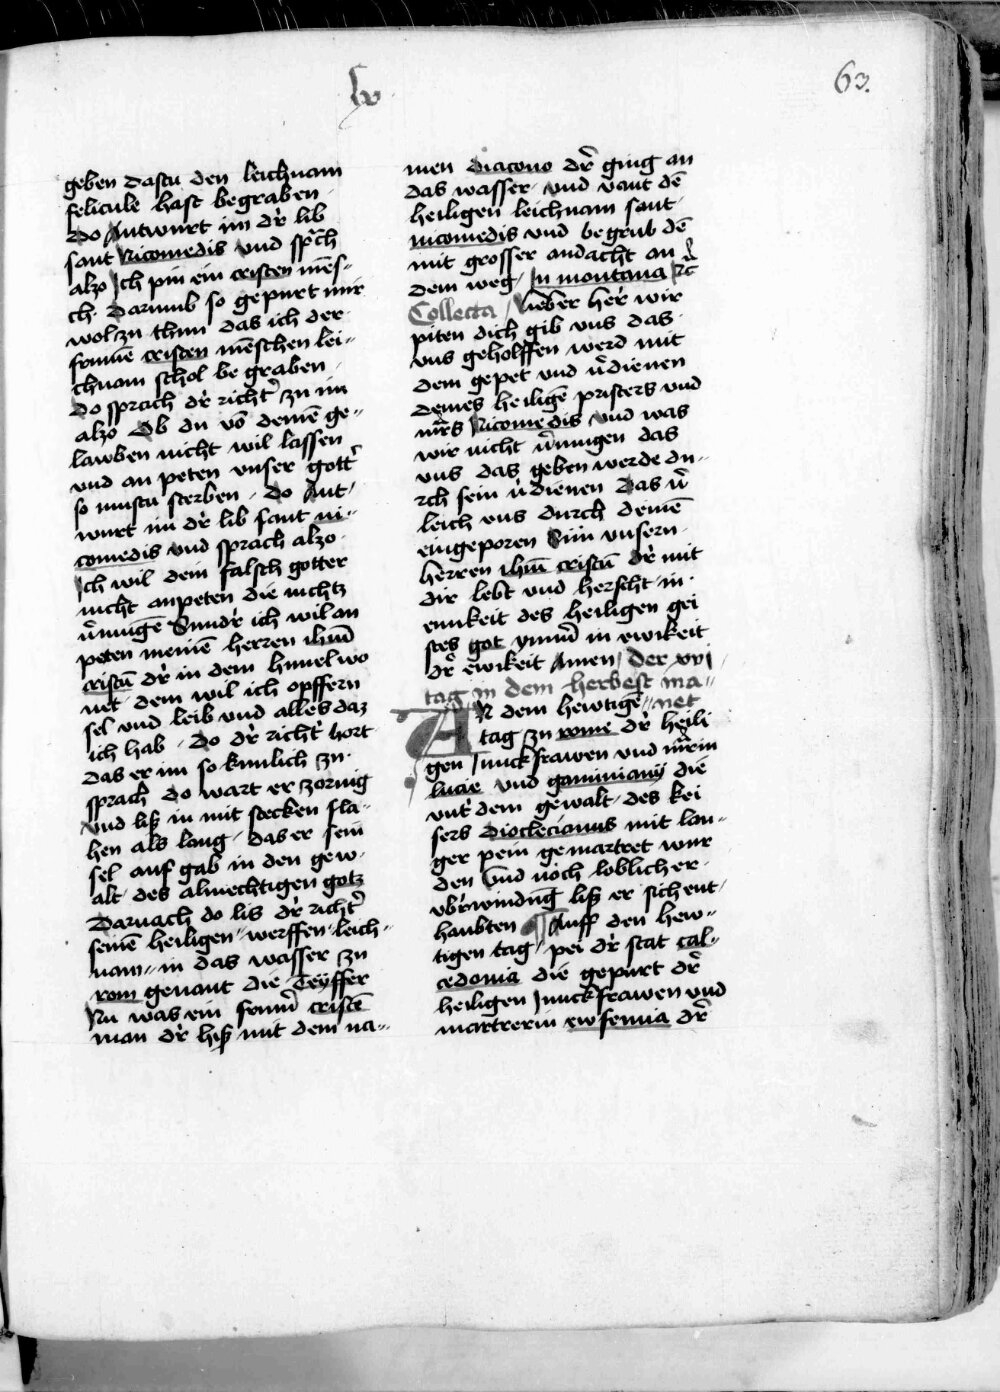 lv
63.
geben dastu den leichnam
felicule hast begraben
do Antwurt im dr̛ lib
sant Nicomedis vnd spr̄ch
alzo Ich pin ein cristen mēs-
ch. darumb so gepurt mir
wol zu thun das ich der
frumē cristen mēschen lei-
chnam schol be graben
do sprach dr̛ richt̛ zu im
alzo Ob du vō deinē ge-
lawben nicht wil lassen
vnd an peten vnser gott̛
so mustu sterben. do Ant-
wurt im dr̛ lib sant ni-
comedis vnd sprach alzo
Ich wil dein falsch gotter
nicht anpeten die nichtz
v̛mugē Sundr̛ ich wil an
peten meinē herren ihm̄
cristū dr̛ in dem himel wo
net. dem wil ich opffern
sel vnd leib vnd alles daz
ich hab. do dr̛ richt̛ hort
das er im so kunlich zu
sprach do wart er zornig
vnd liß in mit stecken sla-
hen als lang. das er sein
sel auf gab in den gew-
alt. des almechtigen gotz
Darnach do lis dr̛ richt̛
seinē heiligen werffen leich-
nam in das wasser zu
rom genant die Teyffer
Nu was ein frum̄ cristē
man dr̛ hiß mit dem na-
men diacono dr̛ ging an
das wasser. vnd vant dē
heiligen leichnam sant
nicomedis vnd begrub dē
mit grosser andacht an d̛
dem weg In montana rc̄
Collecta Lieber her̛ wir
piten dich gib vns das
vns geholffen werd mit
dem gepet vnd v̛dienen
deines heiligē pristers vnd
mr̄s Nicomedis vnd was
wir nicht v̛mugen das
vns das geben werde du-
rch sein v̛dienen das v̛
leich vns durch deinē
eingeporen Sun vnsern
herren ihm̄ cristū dr̛ mit
dir lebt vnd herscht in
einikeit des heiligen gei
stes got ymm̛ in ewikeit
dr̛ ewikeit Amen der xvi
tag in dem herbest ma-
An dem hewtigē net
tag zu rome dr̛ heili
gen Junckfrawen vnd mr̄rin
lucie vnd gaminiany die
vnt̛ dem gewalt. des kei
sers dioclecianus mit lan-
ger pein gemartret wur
den vnd noch loblicher
vbr̛windūg liß er sich ent-
haubten ¶ Auff den hew-
tigen tag pei dr̛ stat cal-
cedonia die gepurt dr̛
heiligen Junckfrawen vnd
martrerin ewfemia dr̛